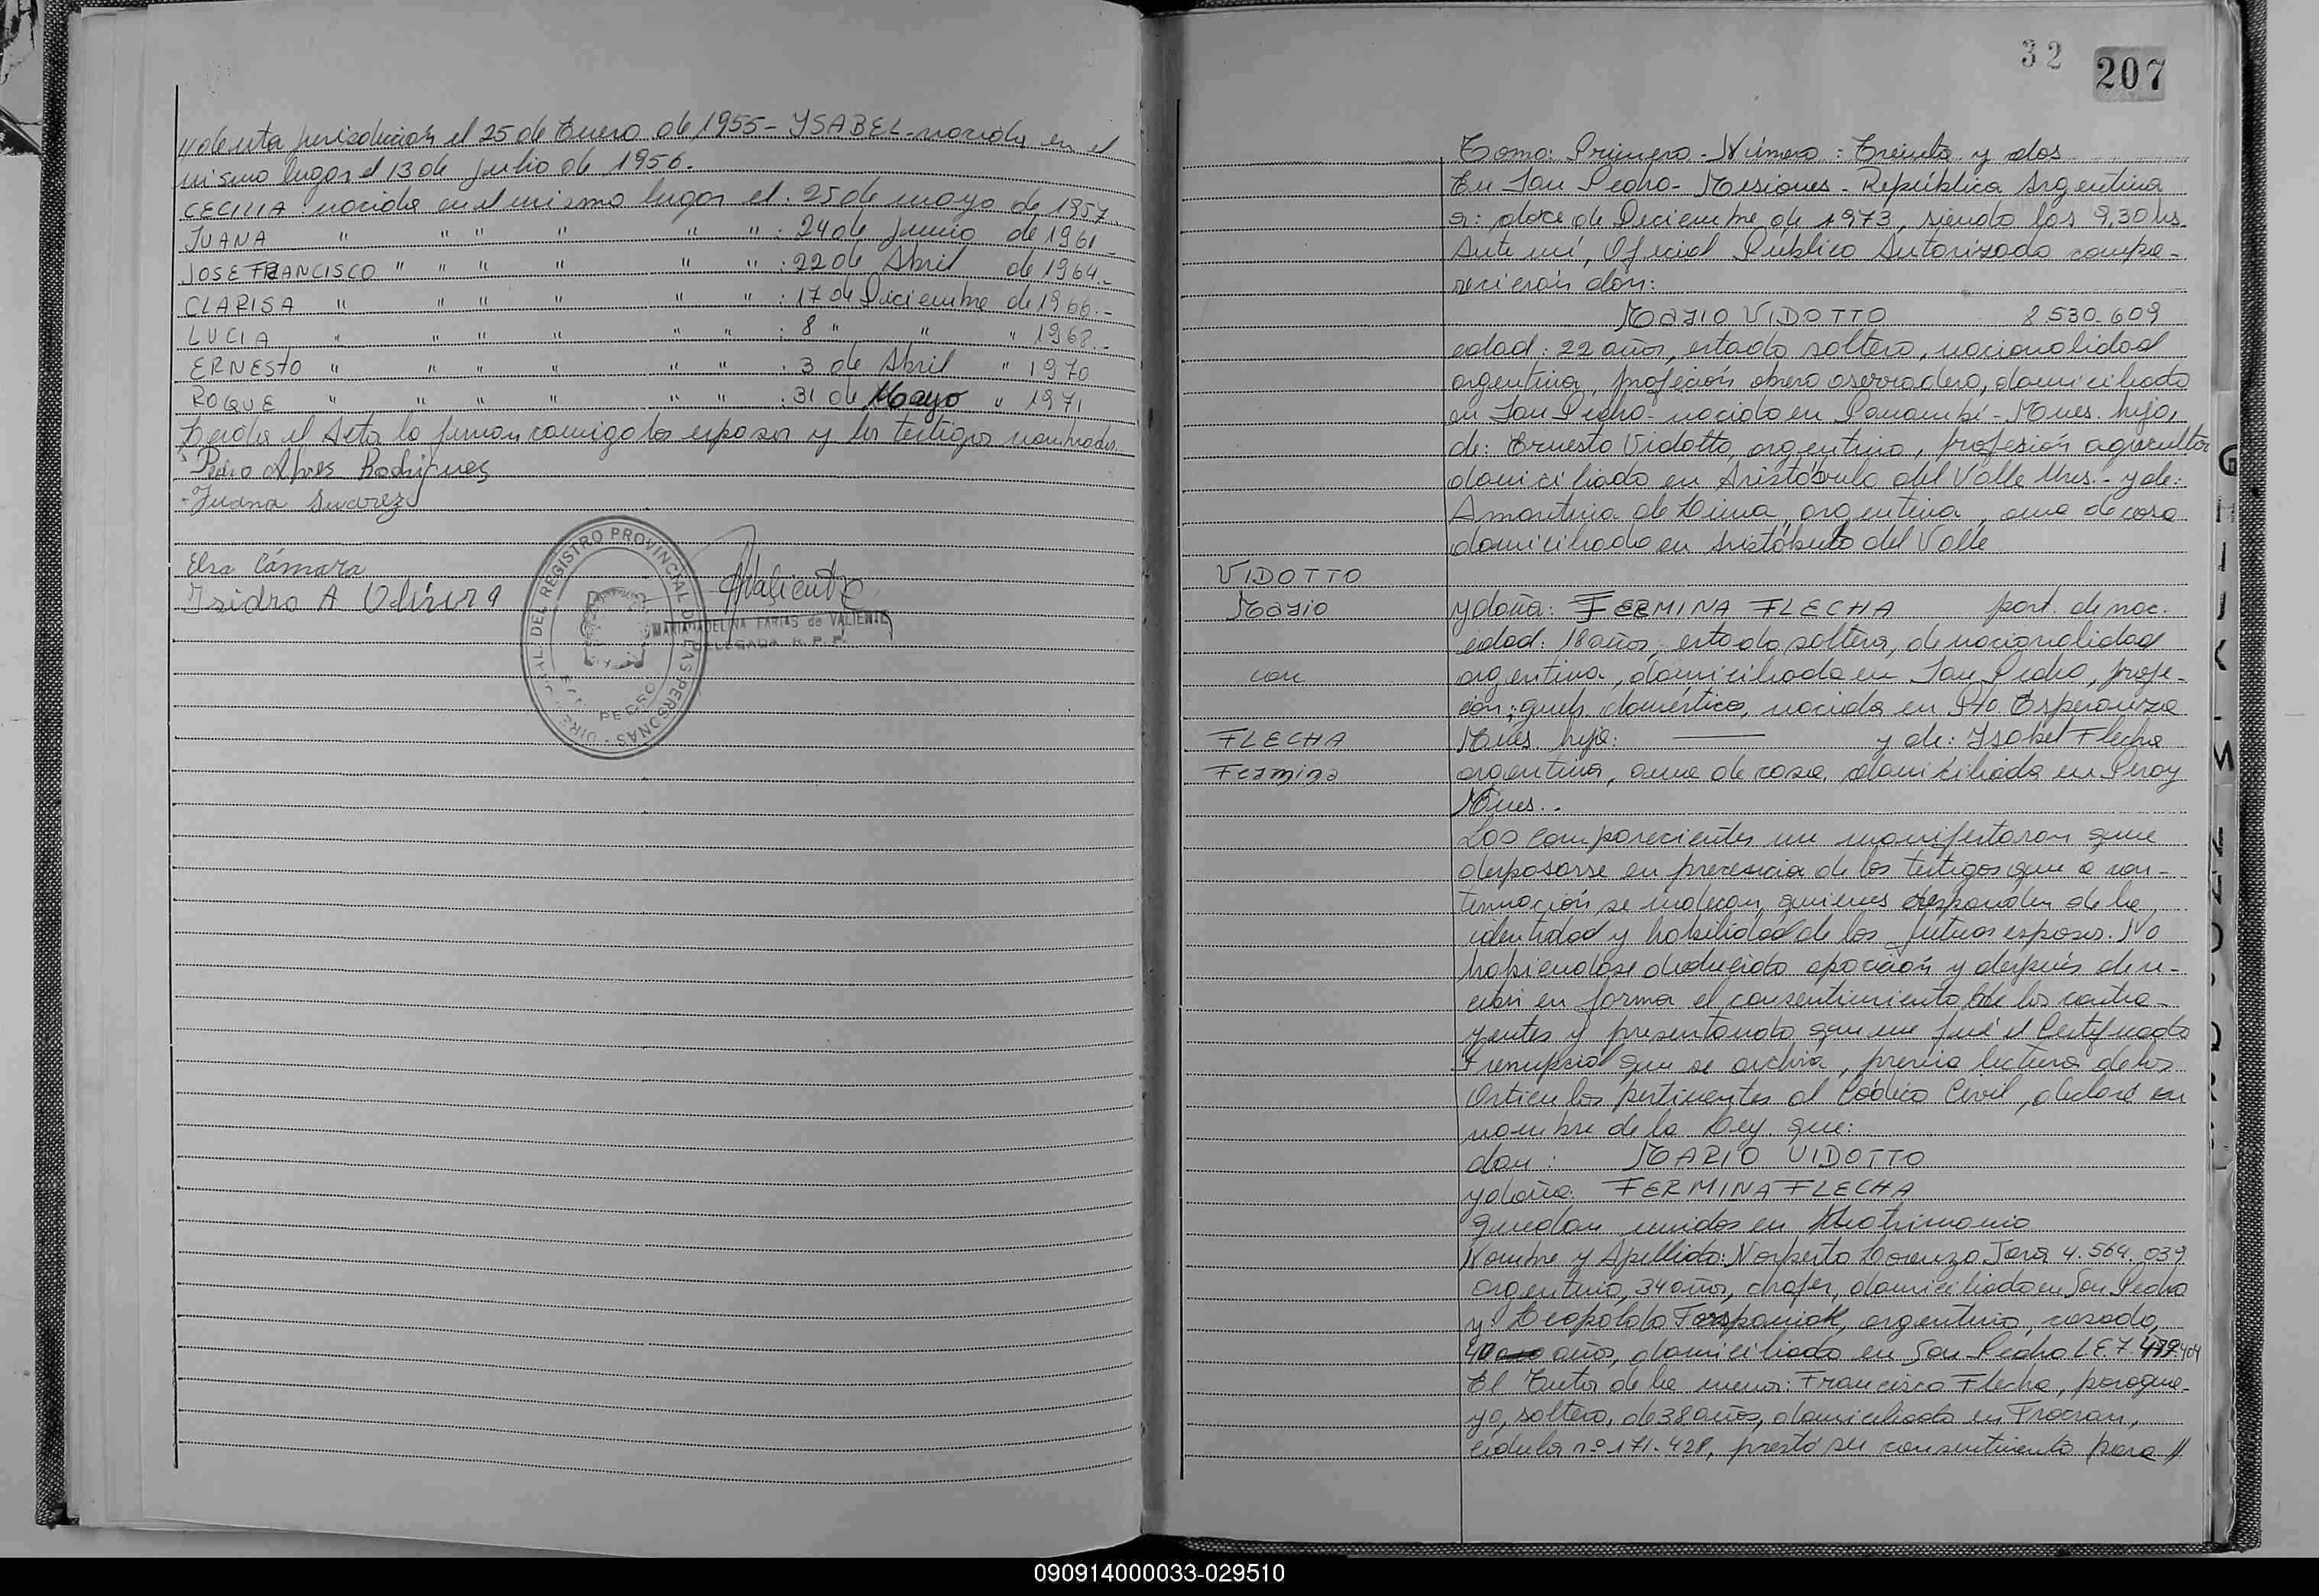 // de esta jurisdicción el 25 de Enero de 1955 - YSABEL - nacida en el
mismo lugar el 13 de Julio de 1956.
CECILIA nacida en el mismo lugar el: 25 de mayo de 1957.
JUANA " " " " " " : 24 de Junio de 1961 -
JOSE FRANCISCO " " " " " " : 22 de Abril de 1964.-
CLARISA " " " " " " : 17 de Diciembre de 1966.-
LUCIA " " " " " " : 8 " " " 1968.-
ERNESTO " " " " " " : 3 de Abril " 1970
ROQUE " " " " " " : 31 de Mayo " 1971
Leída el Acta la firman conmigo los esposos y los testigos nombrados.
Pedro Alves Rodrigues
Juana Suarez
Elsa Cámara
Isidro A
DEL REGISTRO PROVINCIAL DE LAS PERSONAS
MARIA ADELINA FARIAS de VALIENTE
DELEGADA R. P. P.
32 207
Tomo: Primero - Número: Treinta y dos
En San Pedro - Misiones - República Argentina
a: doce de Diciembre de 1973, siendo las 9,30 hs.
Ante mí, Oficial Público Autorizado compa-
recieron don:
MARIO VIDOTTO 8.530.609
edad: 22 años, estado soltero, nacionalidad
argentina, profeción obrero aserradero, domiciliado
en San Pedro - nacido en Panambí - Mnes. hijo,
de: Ernesto Vidotto argentino, profesión agricultor
domiciliado en Aristóbulo del Valle Mnes. - y de:
Amantina de Lima, argentina, ama de casa
domiciliada en Aristóbulo del Valle
VIDOTTO
Mario
con
FLECHA
Fermina
y doña: FERMINA FLECHA part. de nac.
edad: 18 años, estado soltera, de nacionalidad
argentina, domiciliada en San Pedro, profe-
ción: queh. doméstico, nacida en Pto. Esperanza
Mnes. hija: ——— y de: Ysabel Flecha
argentina, ama de casa, domiciliada en Piray
Mnes..
Los comparecientes me manifestaron que
desposarse en presencia de los testigos que a con-
tinuación se indican, quienes responden de la
identidad y habilidad de los futuros esposos. No
habiendose deducido oposición y después de re-
cibir en forma el consentimiento de los contra-
yentes y presentando que me fué el Certificado
Prenupcial que se archiva, previa lectura de los
Articulos pertinentes al Código Civil, declaré en
nombre de la Ley, que:
don: MARIO VIDOTTO
y doña: FERMINA FLECHA
quedan unidos en Matrimonio
Nombre y Apellido: Norberto Lorenzo Jara 4.564.039
argentino, 34 años, chofer, domiciliado en San Pedro
y Leopoldo argentino, casado,
40 años, domiciliado en San Pedro L.E. 7.479.404
El Tutor de la menor: Francisco Flecha, paragua-
yo, soltero, de 38 años, domiciliado en Fracran,
cédula nº 171.428, prestó su consentimiento para //
090914000033-029510